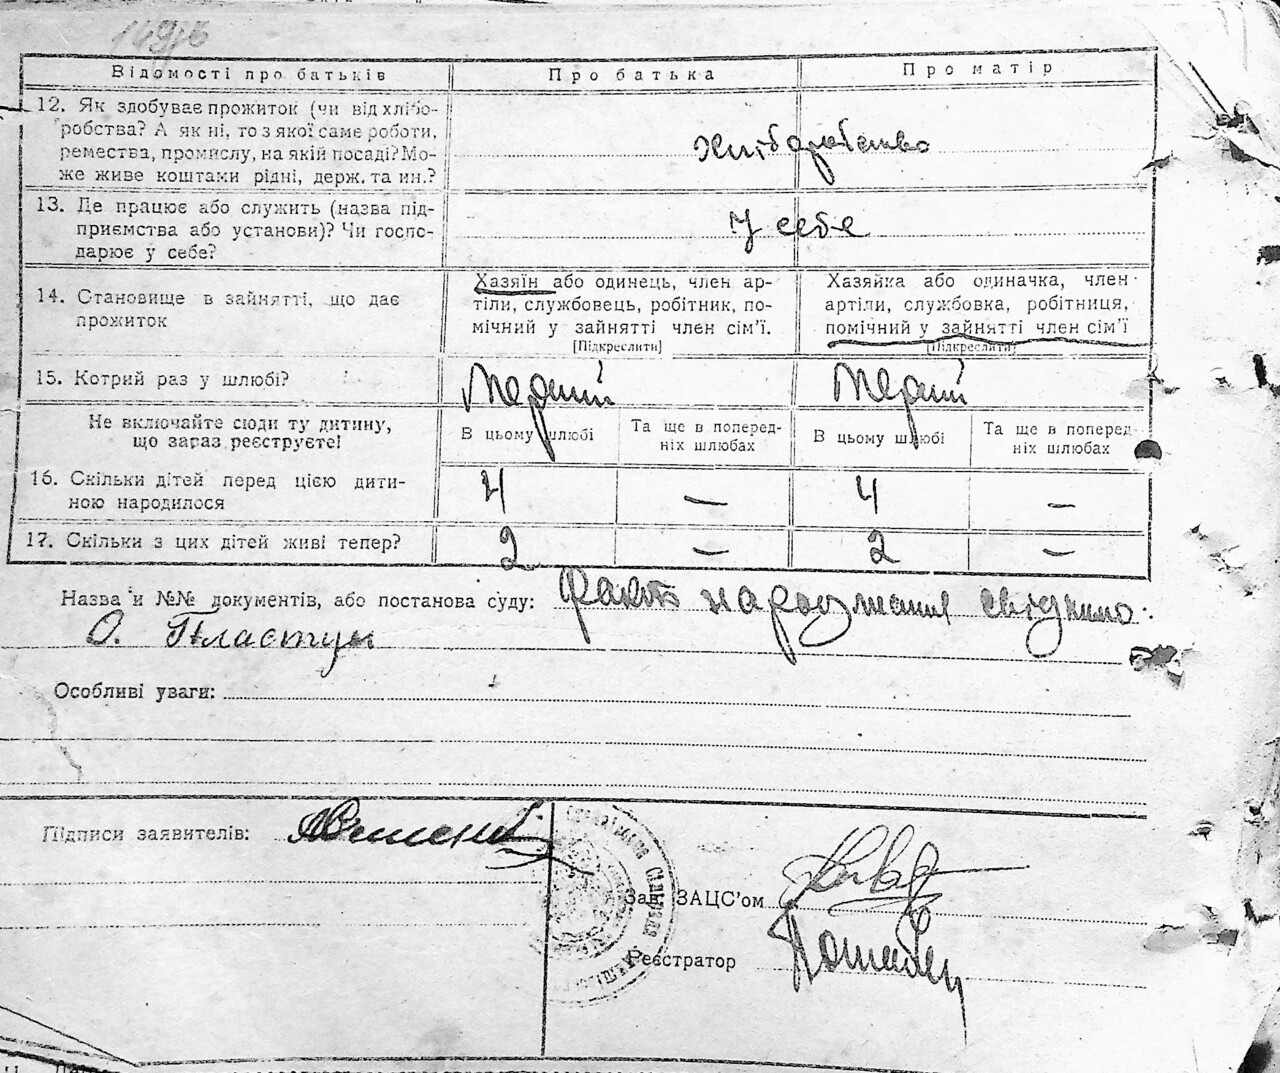 149/б
Відомості про батьків
Про батька
Про матір
12. Як здобуває прожиток (чи від хлібо-
робства? А як ні, то з якої саме роботи,
ремества, промислу, на якій посаді? Мо-
же живе коштами рідні, держ. та ин.?
Хліборобство
13. Де працює або служить (назва під-
приємства або установи)? Чи госпо-
дарює у себе?
У себе
14. Становище в зайнятті, що дає
прожиток
Хазяїн або одинець, член ар-
тіли, службовець, робітник, по-
мічний у зайнятті член сім'ї.
[Підкреслити]
Хазяйка або одиначка, член
артіли, службовка, робітниця,
помічний у зайнятті член сім'ї
[Підкреслити]
15. Котрий раз у шлюбі?
Перший
Перший
Не включайте сюди ту дитину,
що зараз реєструєте!
В цьому шлюбі
Та ще в поперед-
ніх шлюбах
В цьому шлюбі
Та ще в поперед-
ніх шлюбах
16. Скільки дітей перед цією дити-
ною народилося
4
—
4
—
17. Скільки з цих дітей живі тепер?
2
—
2
—
Назва и №№ документів, або постанова суду: Факт народження свідчино:
О. Пластун
Особливі уваги:
Підписи заявителів:
Зав. ЗАЦС'ом
Реєстратор